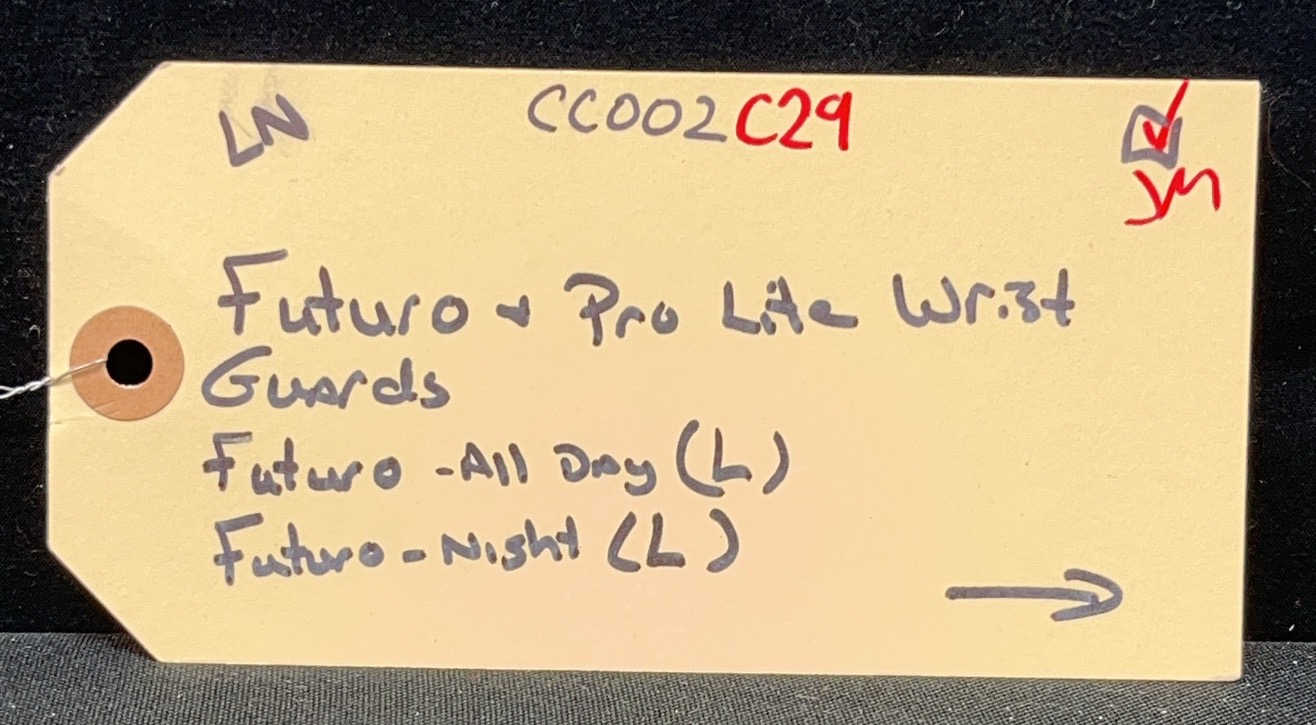 LN CC002C29
JM
Futuro + Pro Lite Wrist
Guards
Futuro - All Day (L)
Futuro - Night (L)